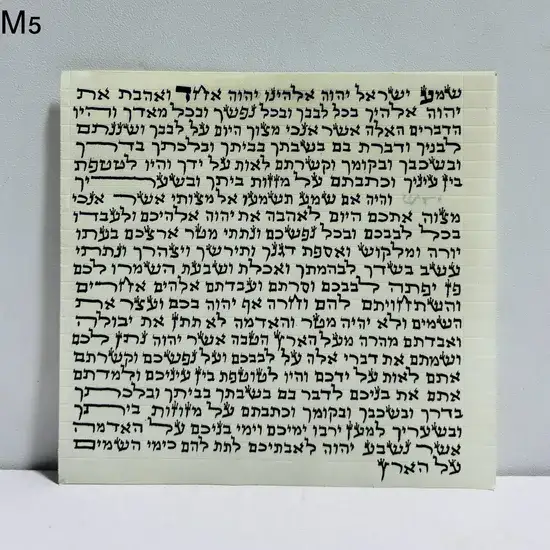 M5
שמע ישראל יהוה אלהינו יהוה אחד ואהבת את
יהוה אלהיך בכל לבבך ובכל נפשך ובכל מאדך והיו
הדברים האלה אשר אנכי מצוך היום על לבבך ושננתם
לבניך ודברת בם בשבתך בביתך ובלכתך בדרך
ובשכבך ובקומך וקשרתם לאות על ידך והיו לטטפת
בין עיניך וכתבתם על מזזות ביתך ובשעריך
והיה אם שמע תשמעו אל מצותי אשר אנכי
מצוה אתכם היום לאהבה את יהוה אלהיכם ולעבדו
בכל לבבכם ובכל נפשכם ונתתי מטר ארצכם בעתו
יורה ומלקוש ואספת דגנך ותירשך ויצהרך ונתתי
עשב בשדך לבהמתך ואכלת ושבעת השמרו לכם
פן יפתה לבבכם וסרתם ועבדתם אלהים אחרים
והשתחויתם להם וחרה אף יהוה בכם ועצר את
השמים ולא יהיה מטר והאדמה לא תתן את יבולה
ואבדתם מהרה מעל הארץ הטבה אשר יהוה נתן לכם
ושמתם את דברי אלה על לבבכם ועל נפשכם וקשרתם
אתם לאות על ידכם והיו לטוטפת בין עיניכם ולמדתם
אתם את בניכם לדבר בם בשבתך בביתך ובלכתך
בדרך ובשכבך ובקומך וכתבתם על מזוזות ביתך
ובשעריך למען ירבו ימיכם וימי בניכם על האדמה
אשר נשבע יהוה לאבתיכם לתת להם כימי השמים
על הארץ